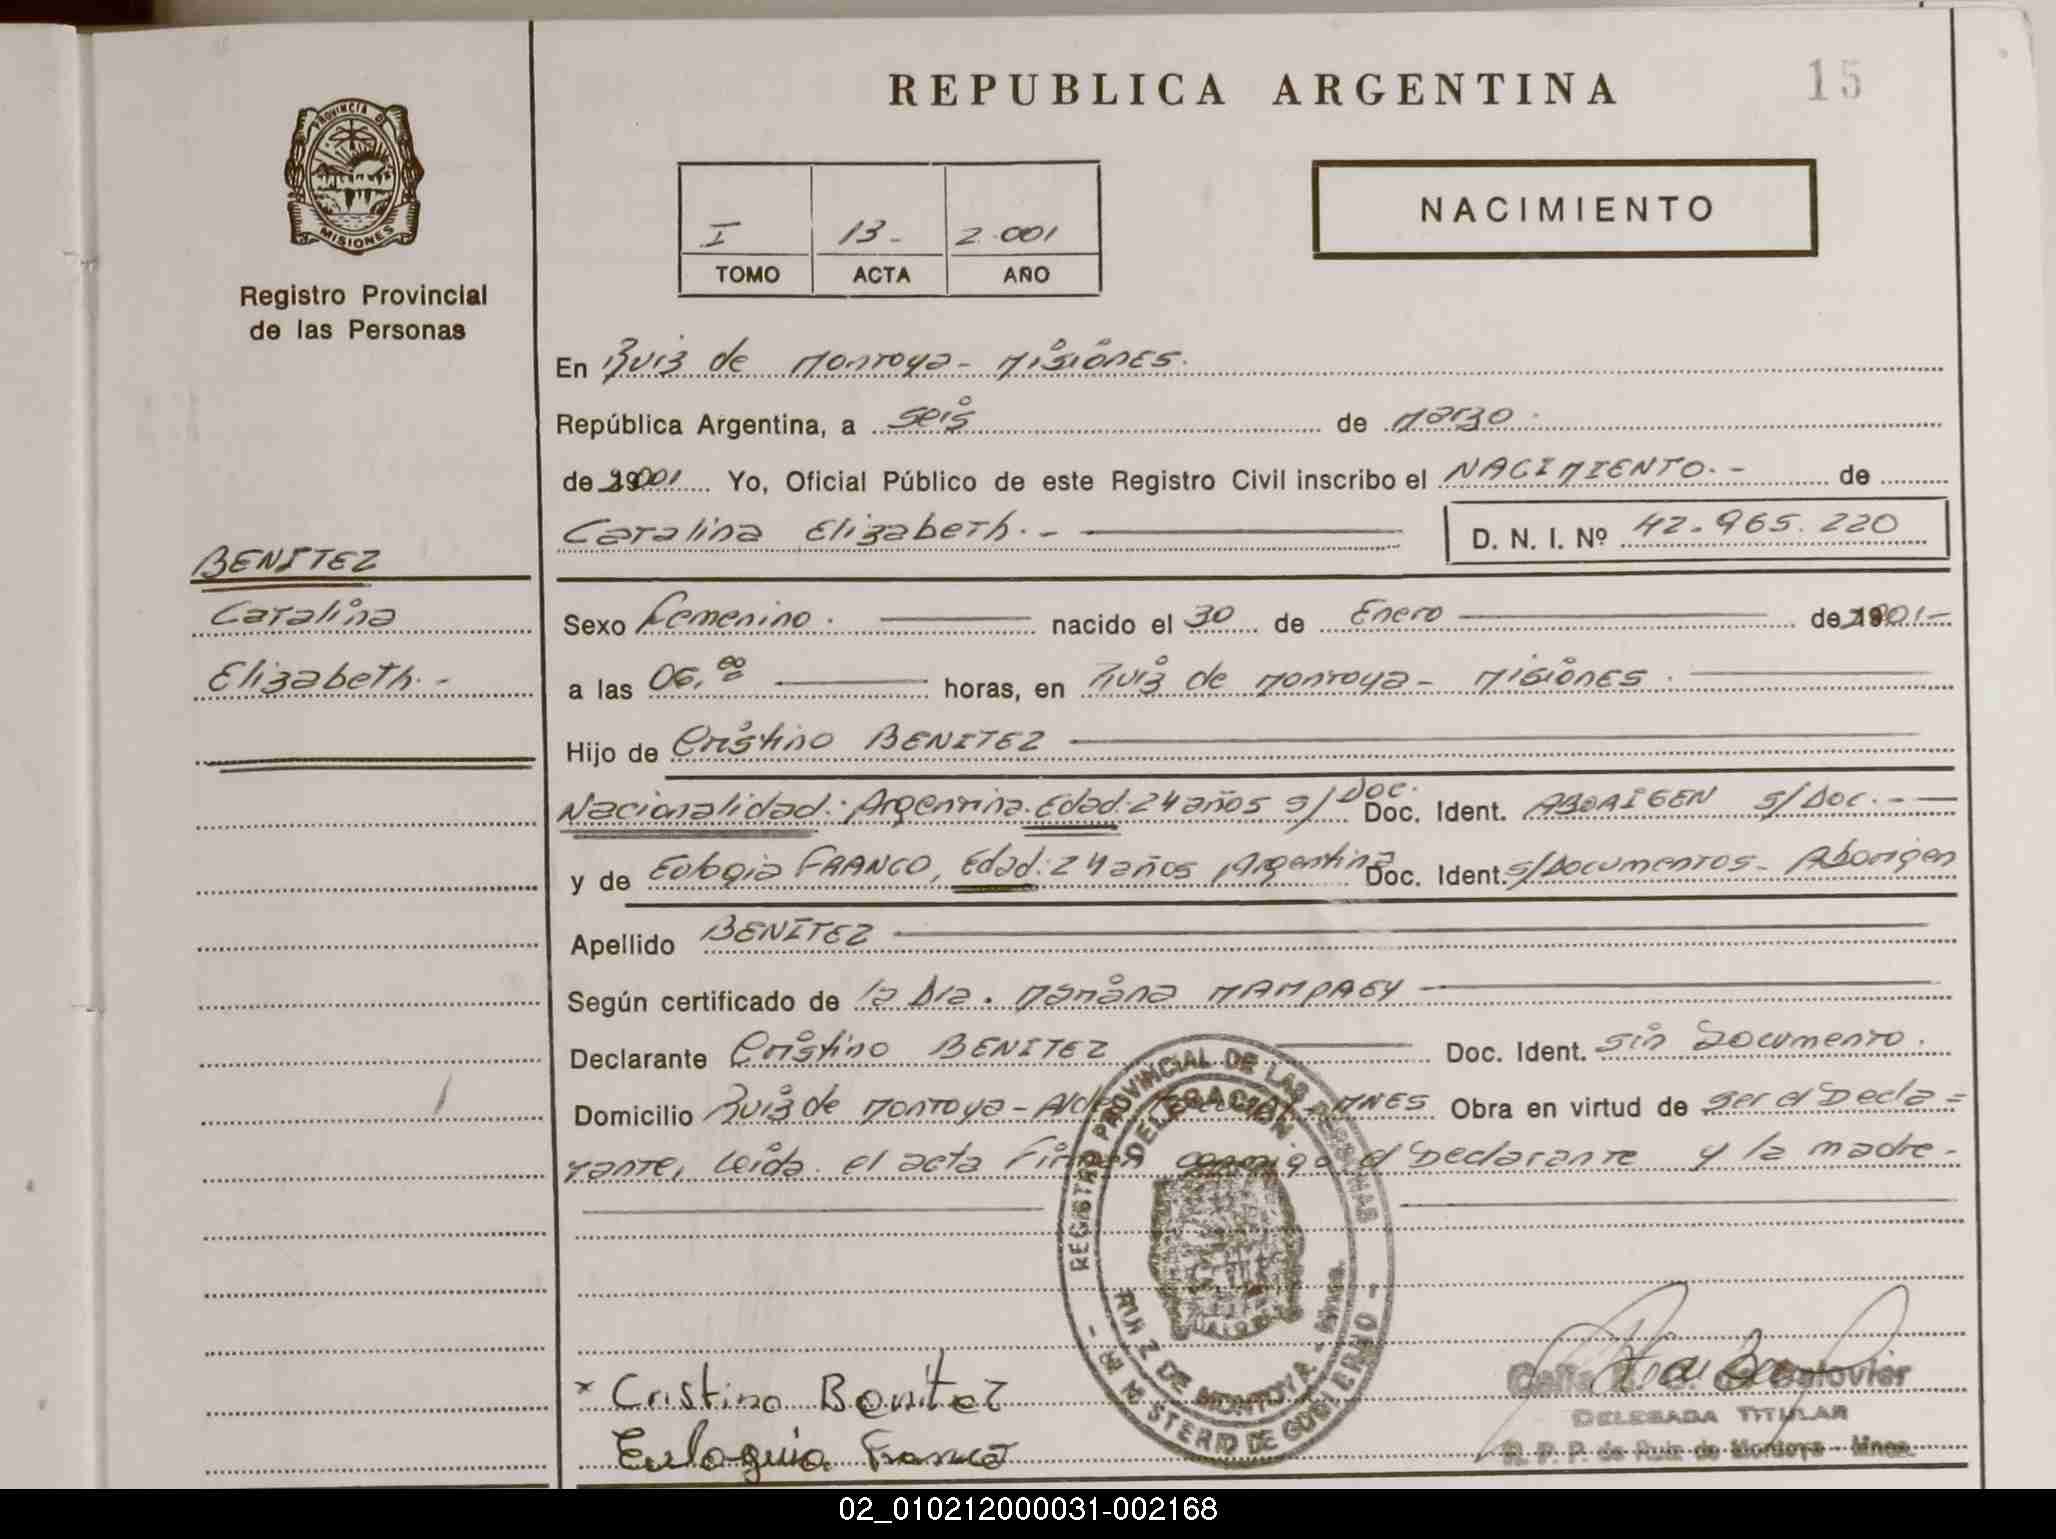 REPUBLICA ARGENTINA
15
PROVINCIA DE
MISIONES
Registro Provincial
de las Personas
I 13- 2.001
TOMO ACTA AÑO
NACIMIENTO
En Ruiz de Montoya- Misiones.
República Argentina, a seis de Marzo.
de 2001 Yo, Oficial Público de este Registro Civil inscribo el NACIMIENTO.- de
Catalina Elizabeth.-
D. N. I. Nº 42.965.220
BENITEZ
Catalina
Elizabeth.-
Sexo Femenino. nacido el 30 de Enero de 2001-
a las 06,00 horas, en Ruiz de Montoya- Misiones.
Hijo de Cristino BENITEZ
Nacionalidad: Argentina. Edad: 24 años s/Doc. Doc. Ident. ABORIGEN s/Doc.-
y de Eulogia FRANCO, Edad: 24 años, Argentina Doc. Ident. s/Documentos- Aborigen
Apellido BENITEZ
Según certificado de la Dra. Mariana MAMPAEY
Declarante Cristino BENITEZ Doc. Ident. sin Documento.
Domicilio Ruiz de Montoya- MNES Obra en virtud de ser el Decla=
rante, leída el acta Firman conmigo el Declarante y la madre-
REGISTRO PROVINCIAL DE LAS PERSONAS
DELEGACION
RUIZ DE MONTOYA - Mnes.
- MINISTERIO DE GOBIERNO -
x Cristino Benitez
Euloguia Franco
DELEGADA TITULAR
R. P. P. de Ruiz de Montoya - Mnes.
02_010212000031-002168